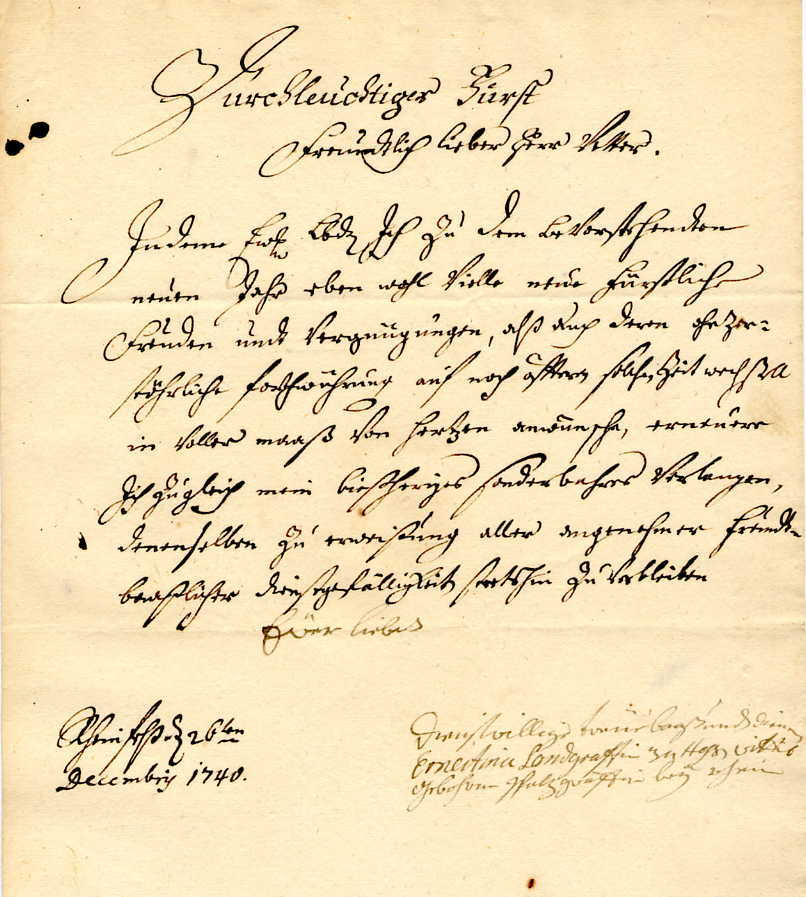 Durchleuchtiger Fürst
Freundtlich lieber Herr Vetter.
Indeme Ew. Lbd. Ich zu dem bevorstehenden
neuen Jahr eben wohl Vielle neue Fürstliche
Freuden undt Vergnügungen, alß auch deren ohnzer=
stöhrliche forthwührung auf noch öfftern solchen Zeit wechßell
in voller maaß von hertzen anwünsche, erneuere
Ich zugleich mein bießheriges sonderbahres Verlangen,
denenselben zu erweißung aller angenehmer freündt-
baaßlicher dienstgefälligkeit stetshin zu verbleiben
Ewer liebd
Rheinfelß d 26ten
Decembris 1740.
Dienstwillige treue baaß und dienerin
Ernestina Landgräffin zu Heß, wittib
gebohrne Pfaltzgräffin bey Rhein